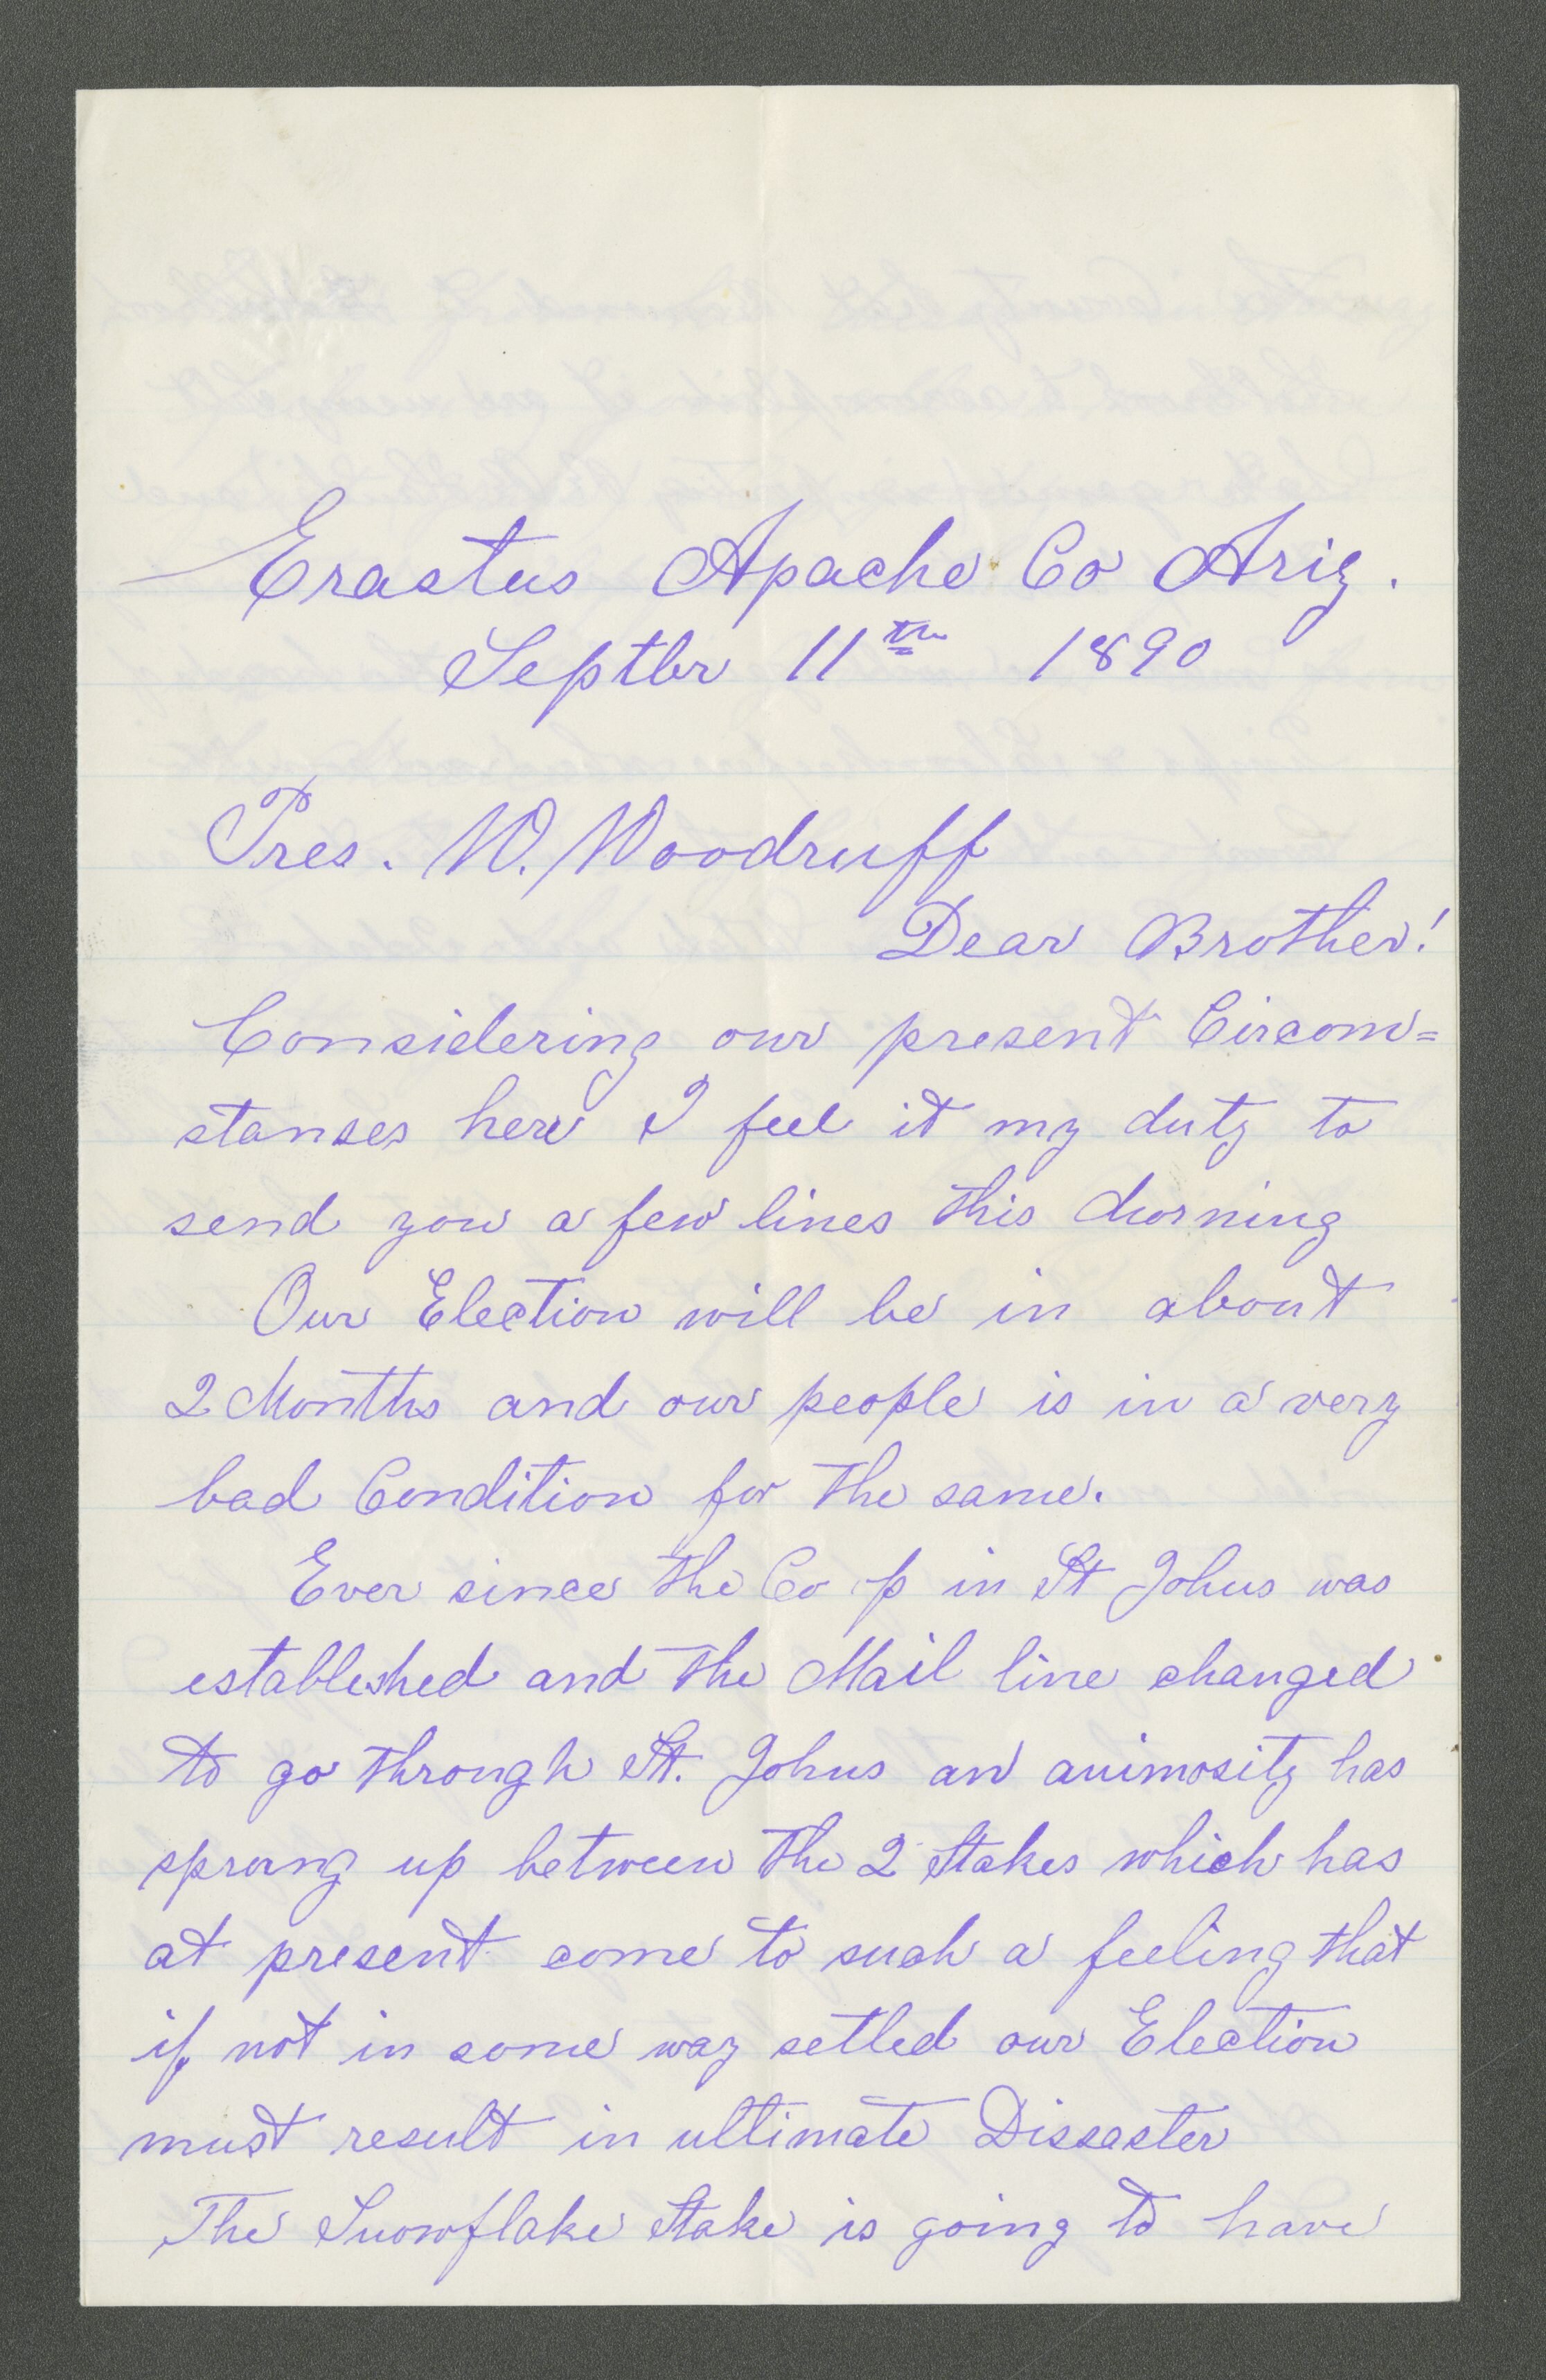 Erastus Apache Co Ariz.
Septbr 11th 1890
Pres. W. Woodruff
Dear Brother!
Considering our present Circom=
stanses here I feel it my duty to
send you a few lines this Morning
Our Election will be in about
2 Months and our people is in a very
bad Condition for the same.
Ever since the Co op in St Johns was
established and the Mail line changed
to go through St. Johns an animosity has
sprung up between the 2 Stakes which has
at present come to such a feeling that
if not in some way setled our Election
must result in ultimate Dissaster
The Snowflake Stake is going to have